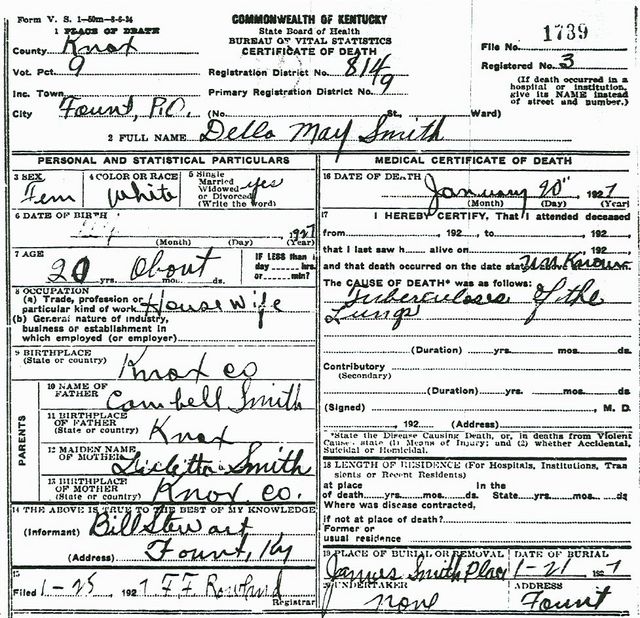 Form V. S. 1-50m-8-6-24
COMMONWEALTH OF KENTUCKY
State Board of Health
BUREAU OF VITAL STATISTICS
CERTIFICATE OF DEATH
1 PLACE OF DEATH
County Knox
Vot. Pct. 9
Inc. Town
City Fount, P.O.
File No. 1739
Registered No. 3
Registration District No. 814
Primary Registration District No. 9
(If death occurred in a hospital or institution, give its NAME instead of street and number.)
(No. St., Ward)
2 FULL NAME Della May Smith
PERSONAL AND STATISTICAL PARTICULARS
3 SEX
Fem
4 COLOR OR RACE
White
5 Single
Married
Widowed
or Divorced
(Write the word)
yes
6 DATE OF BIRTH
192
(Month) (Day) (Year)
7 AGE
20 yrs. About mos. ds.
IF LESS than 1
day hrs.
or min.?
8 OCCUPATION
(a) Trade, profession or
particular kind of work House Wife
(b) General nature of industry,
business or establishment in
which employed (or employer)
9 BIRTHPLACE
(State or country)
Knox Co
PARENTS
10 NAME OF
FATHER
Cambell Smith
11 BIRTHPLACE
OF FATHER
(State or country)
Knox
12 MAIDEN NAME
OF MOTHER
Smith
13 BIRTHPLACE
OF MOTHER
(State or country)
Knox Co.
14 THE ABOVE IS TRUE TO THE BEST OF MY KNOWLEDGE
(Informant) Bill Stewart
(Address) Fount, Ky
15
Filed 1-25 1927 F F Rowland
Registrar
MEDICAL CERTIFICATE OF DEATH
16 DATE OF DEATH
January 20" 1927
(Month) (Day) (Year)
17 I HEREBY CERTIFY, That I attended deceased
from 192 , to 192
that I last saw h alive on 192
and that death occurred on the date stated UnKnown
The CAUSE OF DEATH* was as follows:
Tuberculoses of the
Lungs
(Duration) yrs. mos. ds.
Contributory
(Secondary)
(Duration) yrs. mos. ds.
(Signed) , M. D.
, 192 (Address)
*State the Disease Causing Death, or, in deaths from Violent
Causes state (1) Means of Injury; and (2) whether Accidental,
Suicidal or Homicidal.
18 LENGTH OF RESIDENCE (For Hospitals, Institutions, Tran
sients or Recent Residents)
at place In the
of death yrs. mos. ds. State yrs. mos. ds.
Where was disease contracted,
if not at place of death?
Former or
usual residence
19 PLACE OF BURIAL OR REMOVAL
James Smith Place
DATE OF BURIAL
1-21 1927
20 UNDERTAKER
none
ADDRESS
Fount